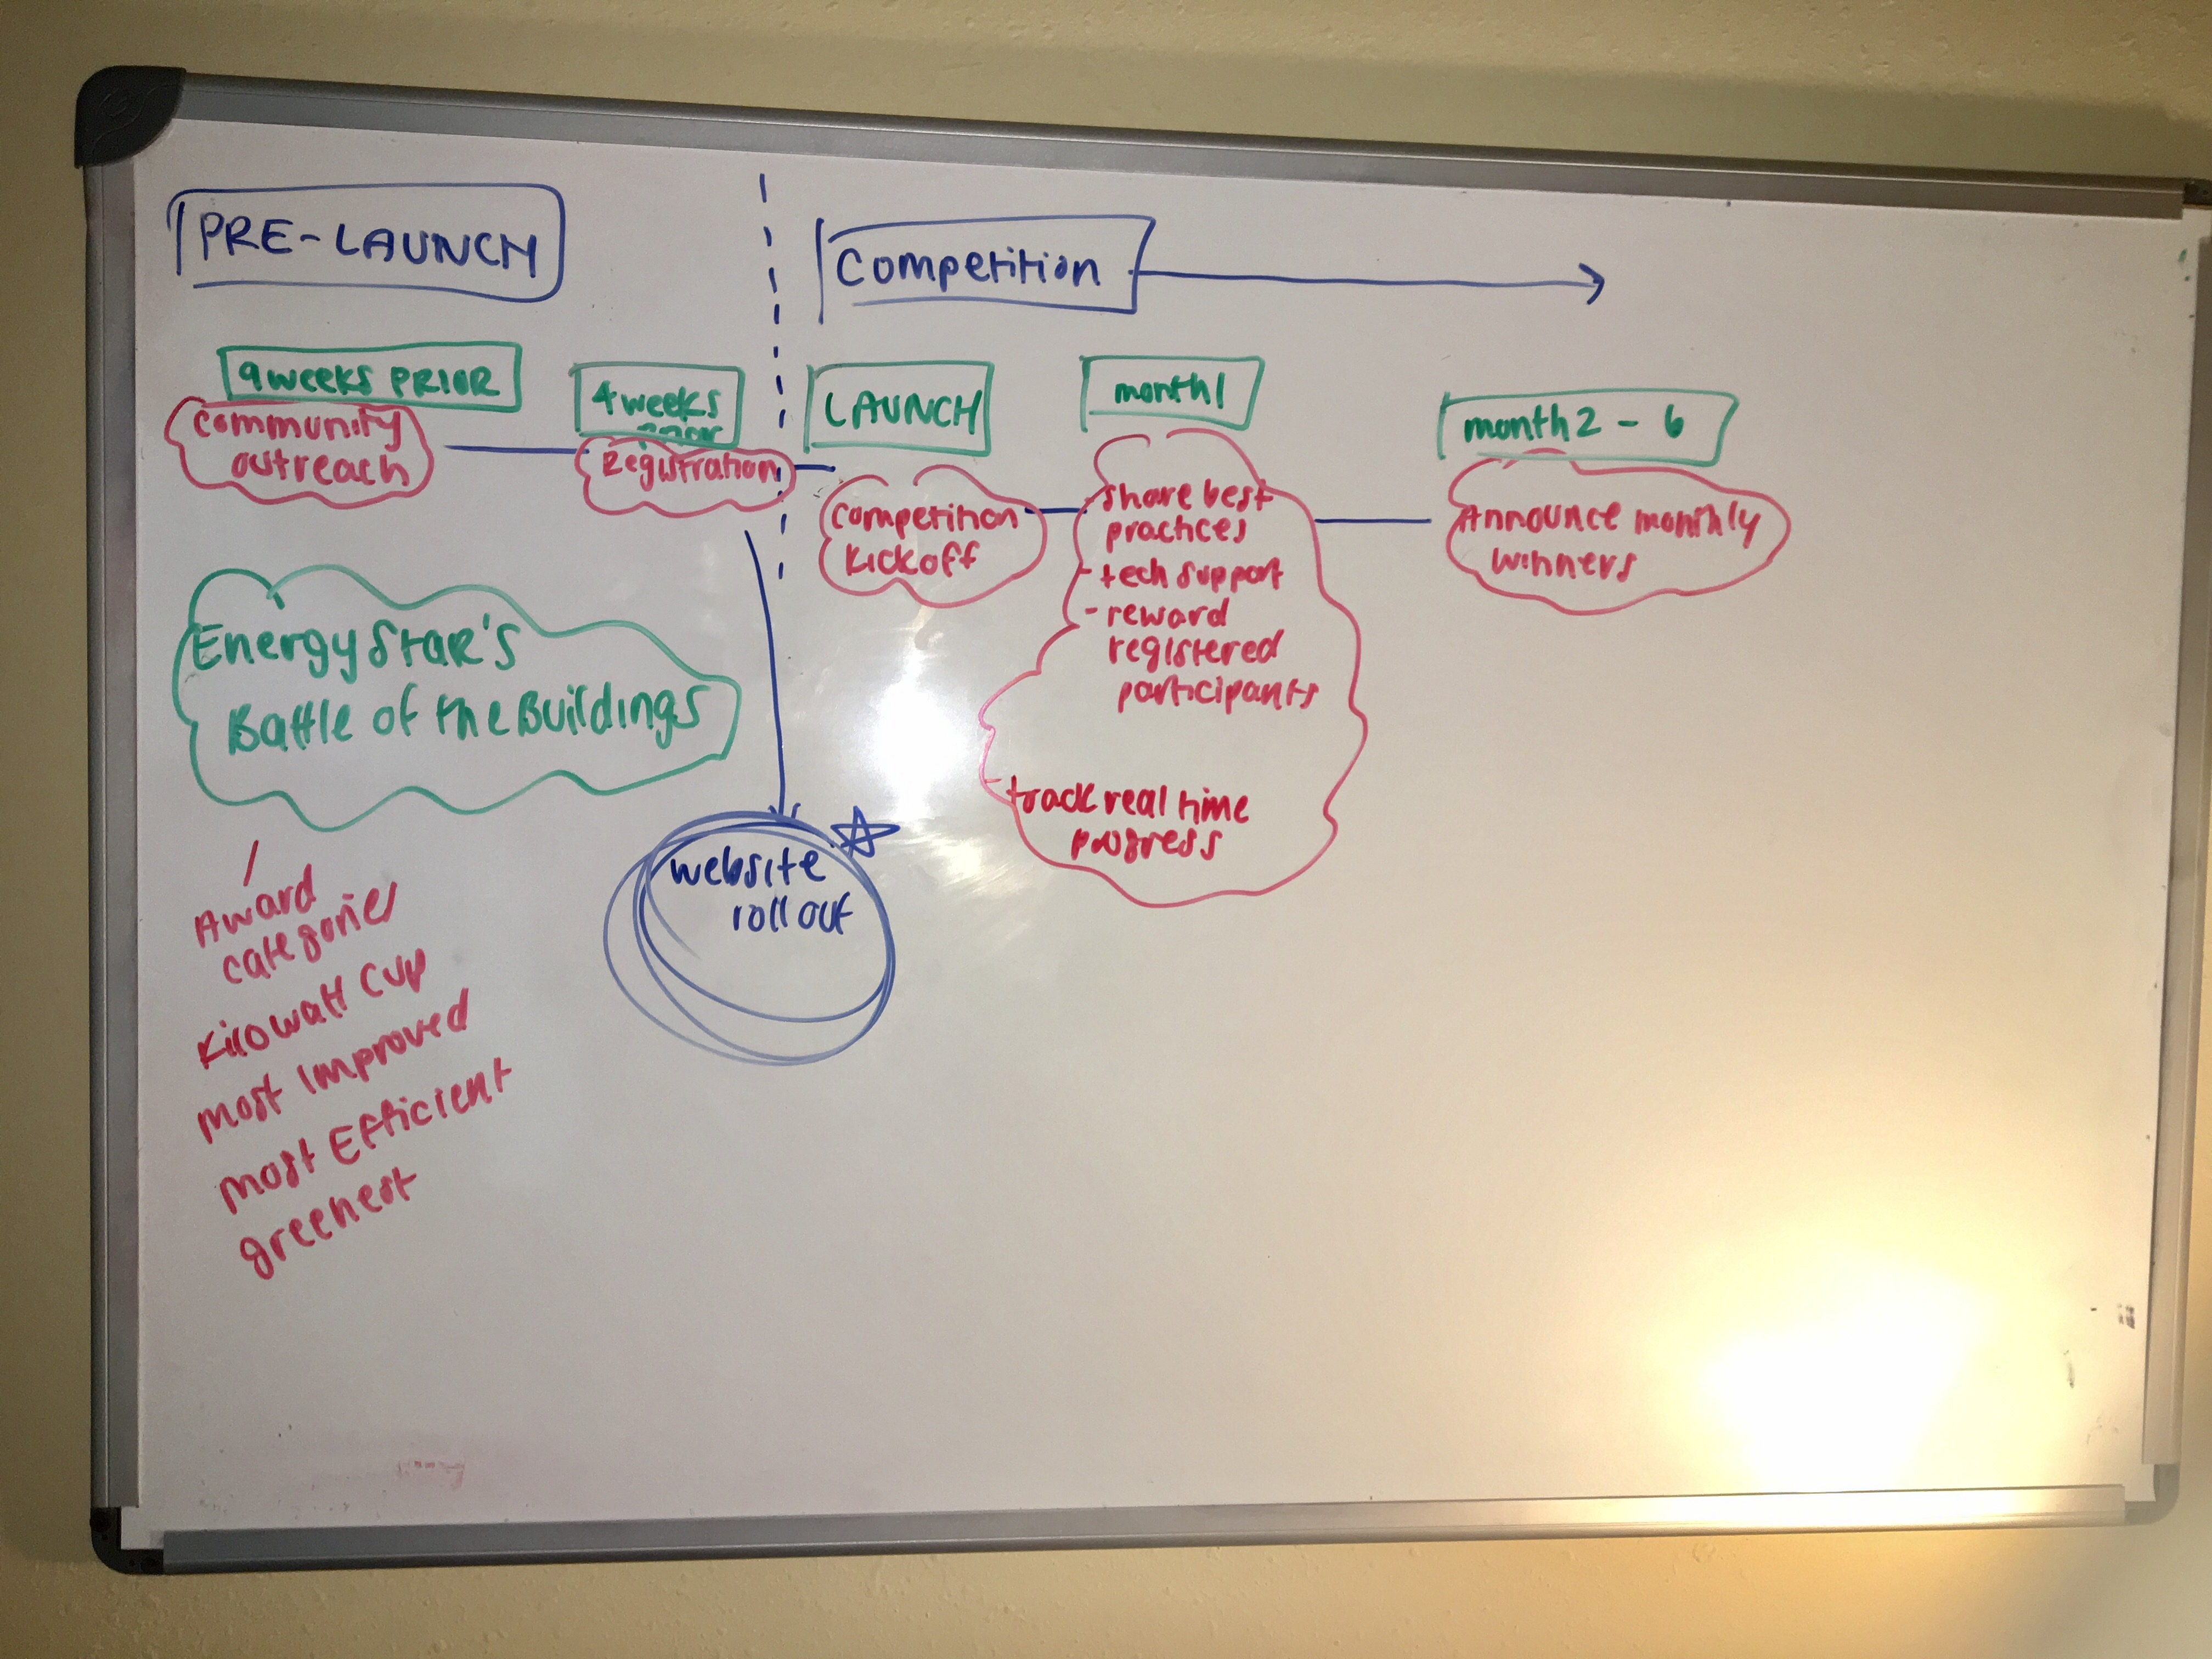 PRE-LAUNCH
Competition
9 weeks PRIOR
4 weeks
prior
LAUNCH
month 1
month 2 - 6
community
outreach
Registration
competition
kickoff
share best
practices
- tech support
- reward
registered
participants
- track real time
progress
Announce monthly
winners
Energy Star's
Battle of the Buildings
website
roll out
Award
categories
Kilowatt Cup
most improved
most Efficient
greenest